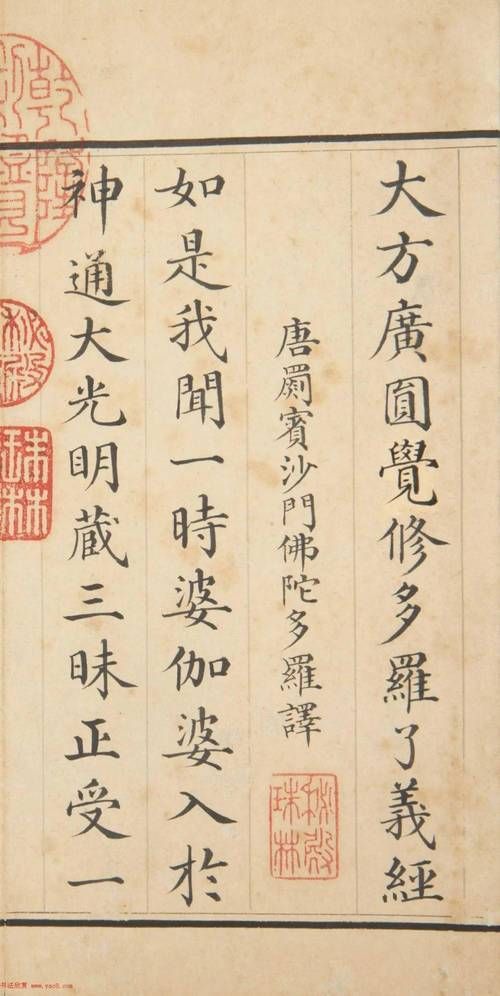 大方廣圓覺修多羅了義經
唐罽賓沙門佛陀多羅譯
如是我聞一時婆伽婆入於
神通大光明蔵三昧正受一
秘殿
珠林
乾隆
御覽
秘殿
珠林
书法欣赏 www.yac8.com